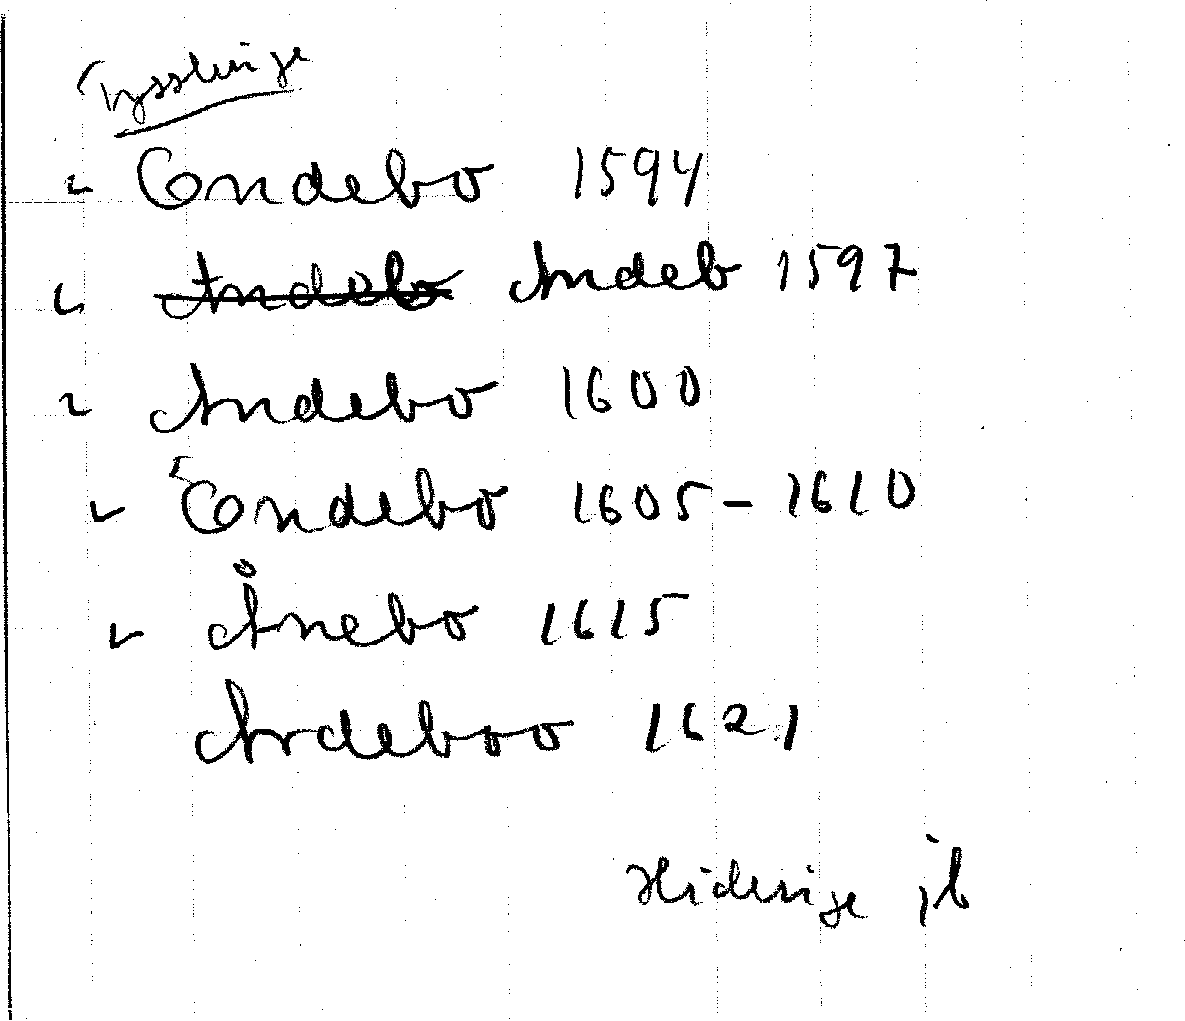 Tysslinge
Endebo 1594
Andebo Andeb 1597
Andebo 1600
Endebo 1605-1610
Ånebo 1615
Ardeboo 1621
Hidinge jb